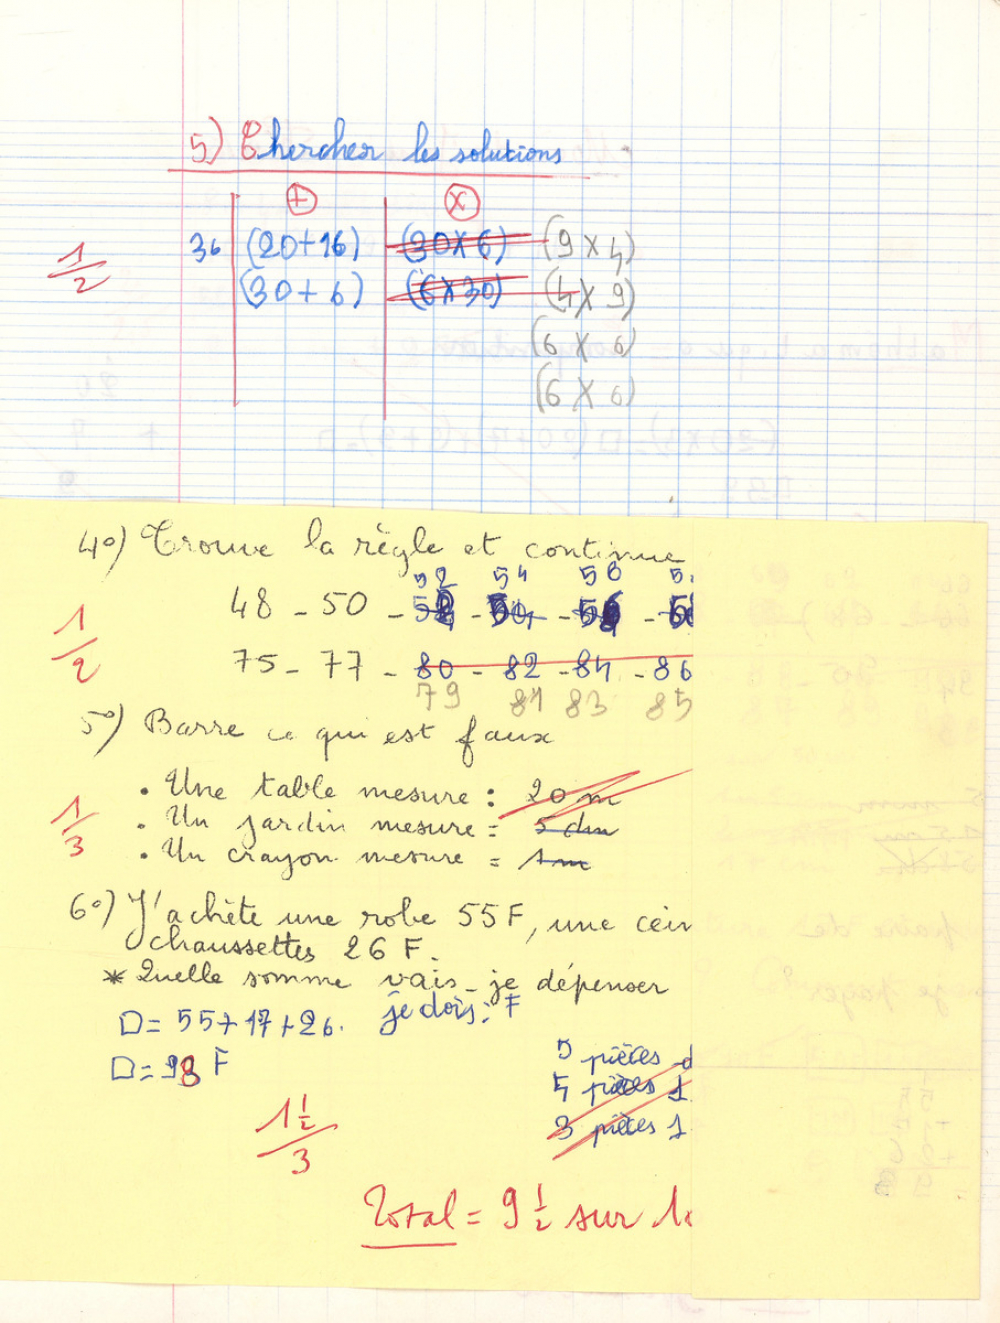 5) Chercher les solutions
+ x
1/2
36 (20+16) (30x6) (9x4)
(30+6) (6x30) (4x9)
(6x6)
(6x6)
4°) Trouve la règle et continue
52 54 56 5
48 - 50 - 52 - 54 - 56 - 5
1/2
75 - 77 - 80 - 82 - 84 - 86
79 81 83 85
5°) Barre ce qui est faux
• Une table mesure : 20 m
1/3
• Un jardin mesure = 5 dm
• Un crayon mesure = 1m
6°) J'achète une robe 55F, une cein
chaussettes 26 F.
* Quelle somme vais-je dépenser
□= 55+17+26. je dois: F
□= 98 F
5 pièces d
4 pièces 1
3 pièces 1
1 1/2 / 3
Total = 9 1/2 sur 1